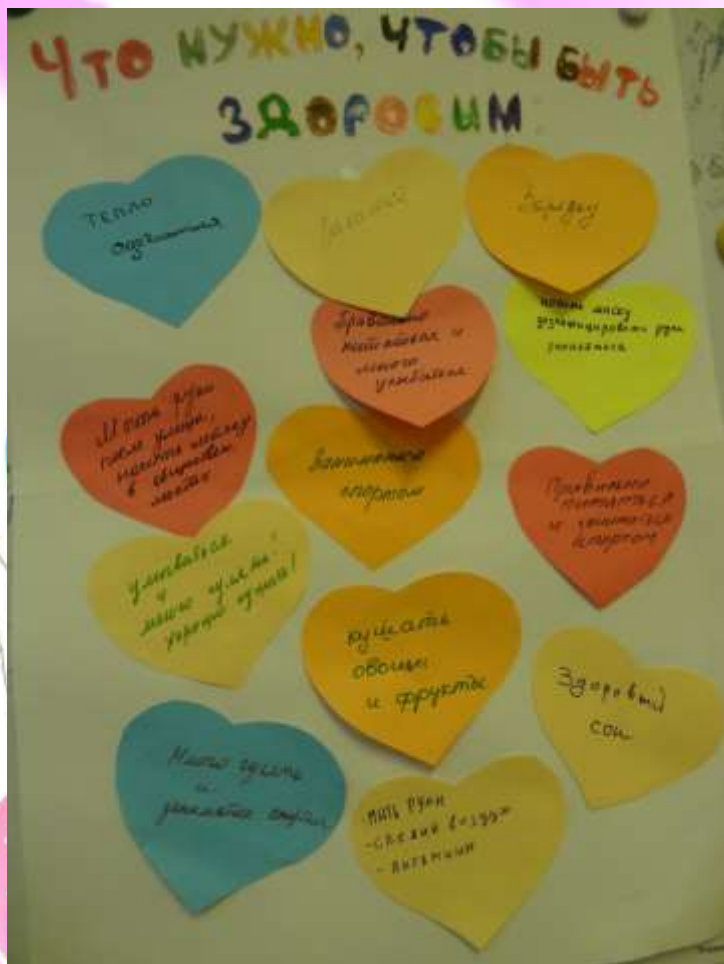 Что нужно, чтобы быть
здоровим
тепло
одеваться
Зарядку
Правильно
питаться и
много
улыбаться
носить маску
дезинфицировать руки
Мыть руки
после улицы,
носить маску
в обществен
местах
Заниматься
спортом
Правильно
питаться
и заниматься
спортом
умываться
и
много гулять!
хорошо кушать!
кушать
овощи
и фрукты
Здоровый
сон
Много гулять
и
заниматься спортом
- мыть руки
- свежий воздух
- витамины